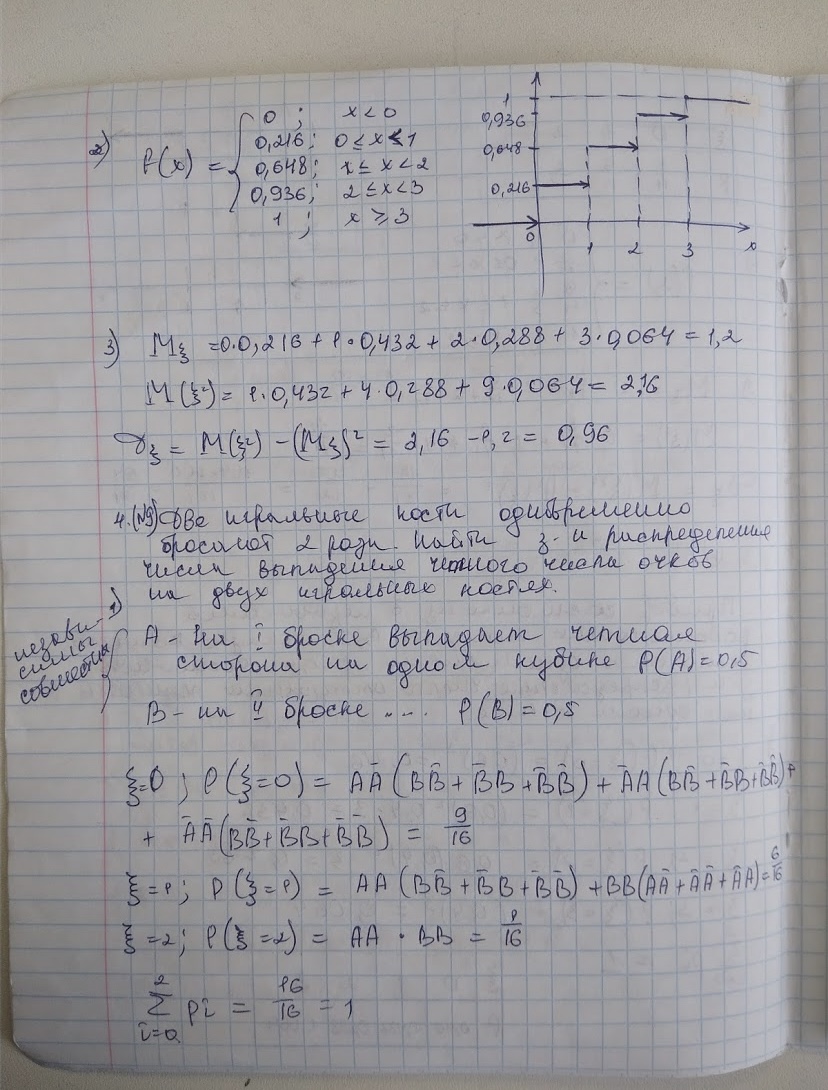 2) P(x) = { 0 ; x < 0
0,216; 0 ≤ x < 1
0,648; 1 ≤ x < 2
0,936; 2 ≤ x < 3
1 ; x ≥ 3
1
0,936
0,648
0,216
0 1 2 3 x
3) Mξ = 0·0,216 + 1·0,432 + 2·0,288 + 3·0,064 = 1,2
M(ξ²) = 1·0,432 + 4·0,288 + 9·0,064 = 2,16
Dξ = M(ξ²) - (Mξ)² = 2,16 - 1,2 = 0,96
4.(№9) Две игральные кости одновременно
бросают 2 раза. Найти з-н распределения
числа выпадения четного числа очков
на двух игральных костях.
1)
незави-
симы
совместны
A - на I броске выпадает четная
сторона на одном кубике P(A) = 0,5
B - на II броске .... P(B) = 0,5
ξ=0 ; P(ξ=0) = AĀ(BB̄ + B̄B + B̄B̄) + ĀA(BB̄ + B̄B + B̄B̄) +
+ ĀĀ(BB̄ + B̄B + B̄B̄) = 9/16
ξ=1; P(ξ=1) = AA(BB̄ + B̄B + B̄B̄) + BB(AĀ + ĀĀ + ĀA) = 6/16
ξ=2; P(ξ=2) = AA · BB = 1/16
2
Σ pi = 16/16 = 1
i=0